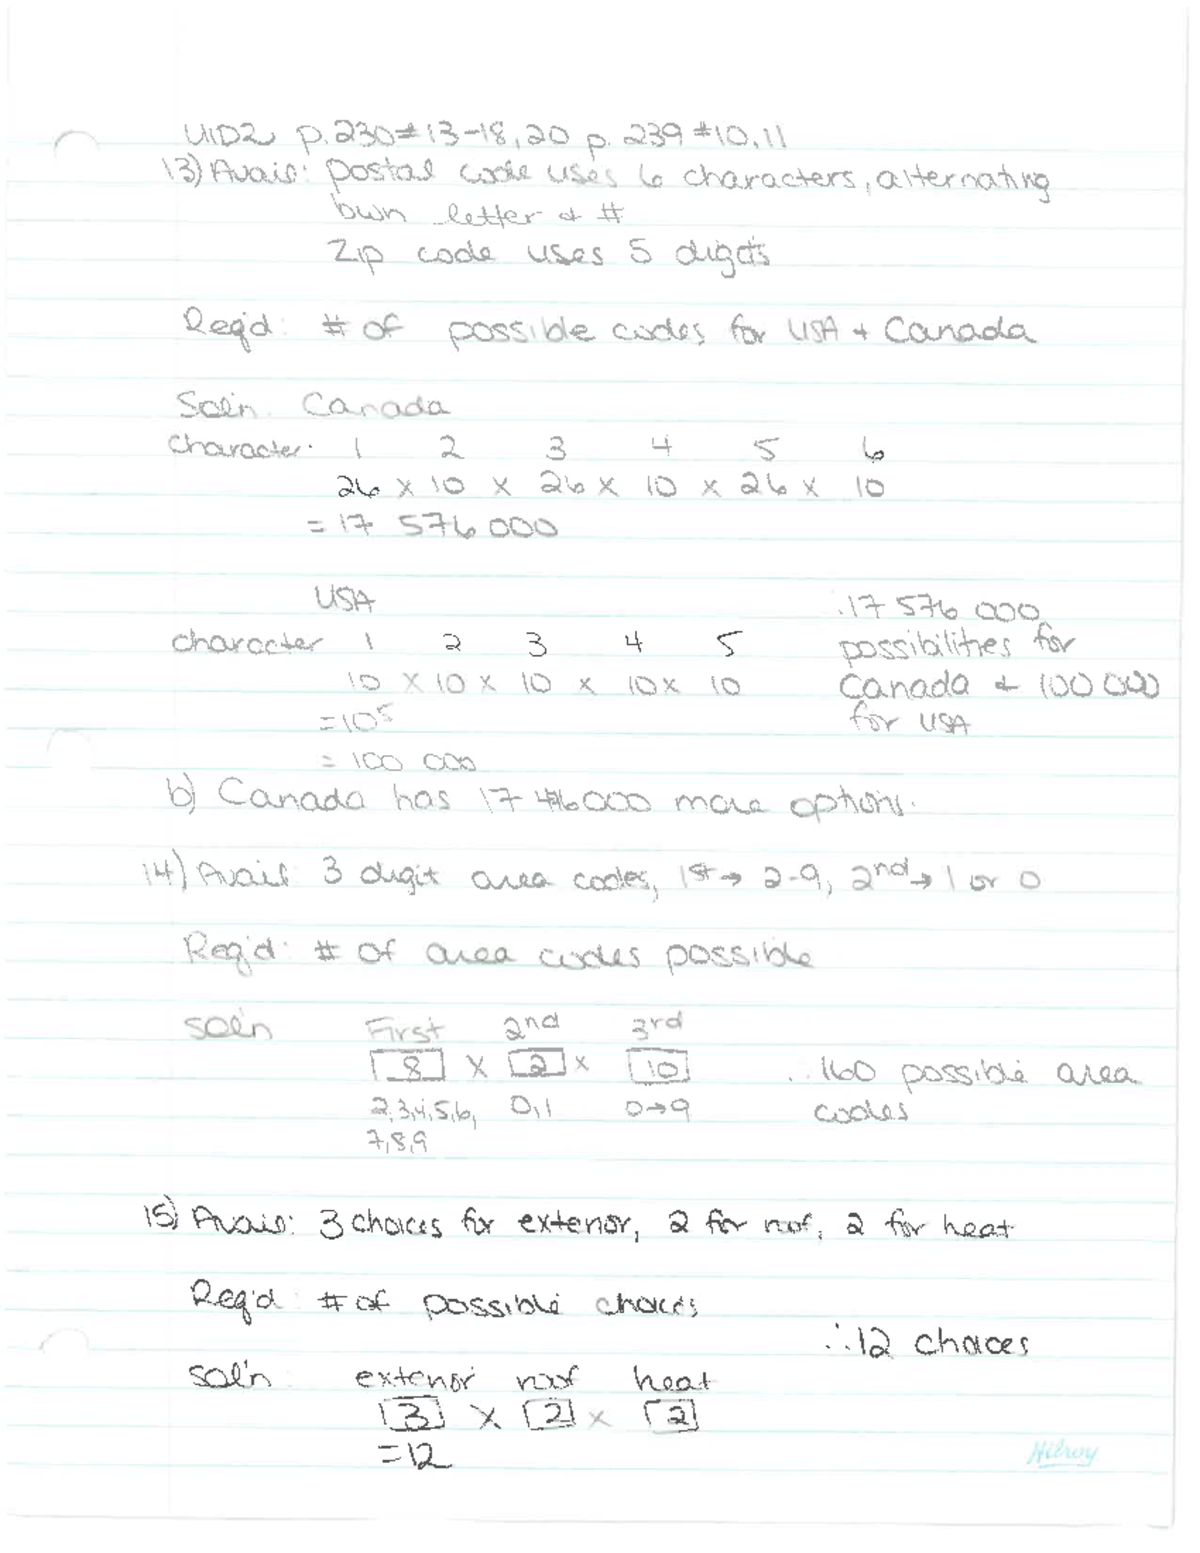 U1D2 p.230 #13-18, 20 p. 239 #10,11
13) Avail: postal code uses 6 characters, alternating
bwn letter & #
Zip code uses 5 digits
Req'd: # of possible codes for USA + Canada
Sol'n. Canada
Character. 1 2 3 4 5 6
26 x 10 x 26 x 10 x 26 x 10
= 17 576 000
USA
∴17 576 000
character 1 2 3 4 5
possibilities for
10 x 10 x 10 x 10 x 10
Canada & 100 000
=10⁵
for USA
= 100 000
b) Canada has 17 476000 more options.
14) Avail: 3 digit area codes, 1st → 2-9, 2nd → 1 or 0
Req'd: # of area codes possible
sol'n First 2nd 3rd
8 x 2 x 10
∴ 160 possible area
2,3,4,5,6, 0,1 0→9
codes
7,8,9
15) Avail: 3 choices for exterior, 2 for roof, 2 for heat
Req'd: # of possible choices
∴12 choices
sol'n: exterior roof heat
3 x 2 x 2
=12
Hilroy